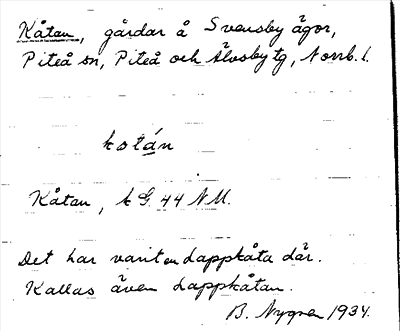 Kåtan, gårdar å Svensby ägor,
Piteå sn, Piteå och Älvsby tg, Norrb. l.
kotán
Kåtan, k G. 44 NU.
Det har varit en lappkåta där.
Kallas även Lappkåtan.
B. Nygren 1934.